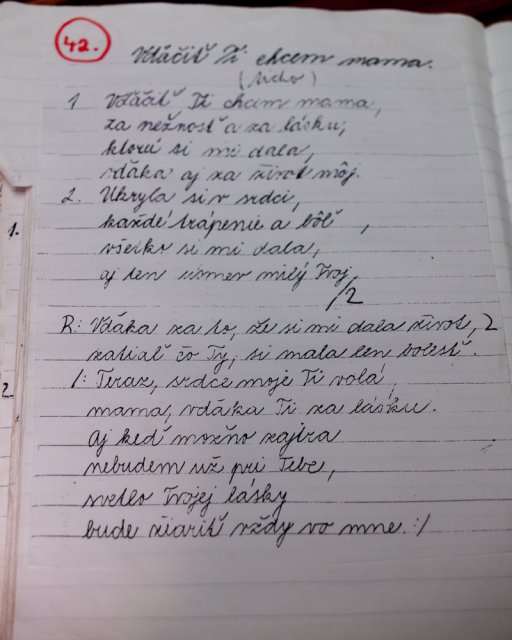 42.
Vďačiť Ti chcem mama.
(ticho)
1 Vďačiť Ti chcem mama,
za nežnosť a za lásku,
ktorú si mi dala,
vďaka aj za život môj.
2. Ukryla si v srdci,
každé trápenie a bôľ ,
všetko si mi dala,
aj ten úsmev milý Tvoj,
/2
R: Vďaka za to, že si mi dala život, 2
zatiaľ čo Ty, si mala len bolesť.
/: Teraz, srdce moje Ti volá,
mama, vďaka Ti za lásku.
Aj keď možno zajtra
nebudem už pri Tebe,
svetlo Tvojej lásky
bude žiariť vždy vo mne. :/
1.
2